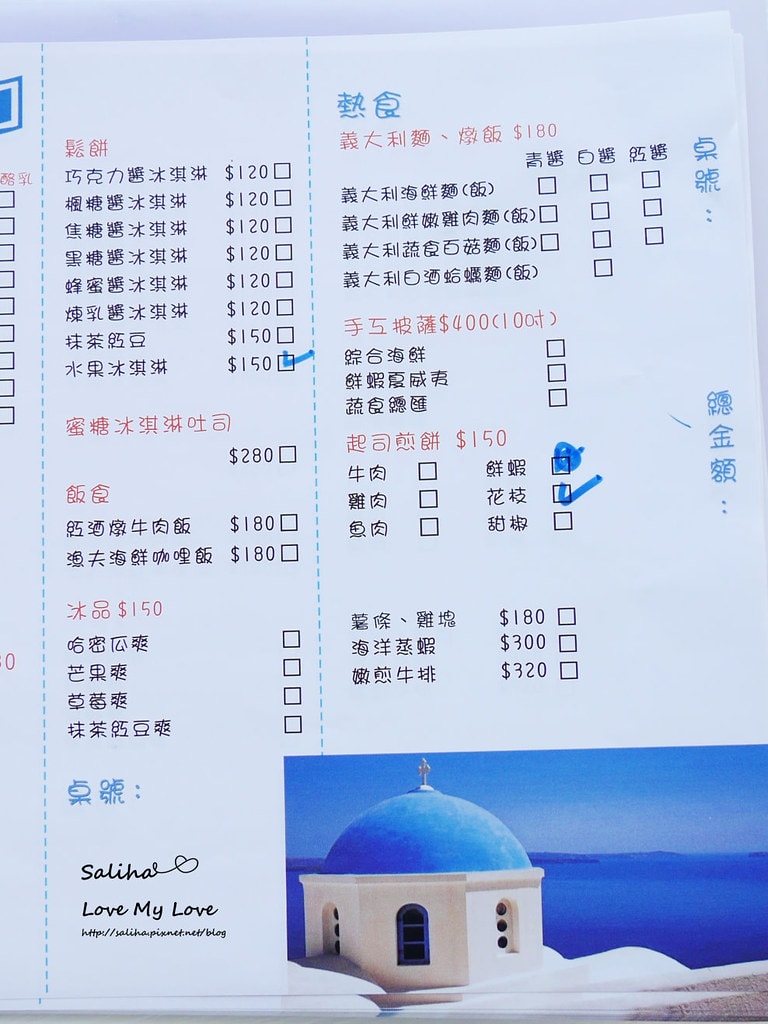 酪乳
30
鬆餅
巧克力醬冰淇淋 $120
楓糖醬冰淇淋 $120
焦糖醬冰淇淋 $120
黑糖醬冰淇淋 $120
蜂蜜醬冰淇淋 $120
煉乳醬冰淇淋 $120
抹茶紅豆 $150
水果冰淇淋 $150
蜜糖冰淇淋吐司
$280
飯食
紅酒燉牛肉飯 $180
漁夫海鮮咖哩飯 $180
冰品$150
哈密瓜爽
芒果爽
草莓爽
抹茶紅豆爽
桌號：
熱食
義大利麵、燉飯 $180
青醬 白醬 紅醬
義大利海鮮麵(飯)
義大利鮮嫩雞肉麵(飯)
義大利蔬食百菇麵(飯)
義大利白酒蛤蠣麵(飯)
手工披薩$400(10吋)
綜合海鮮
鮮蝦夏威夷
蔬食總匯
起司煎餅 $150
牛肉 鮮蝦
雞肉 花枝
魚肉 甜椒
薯條、雞塊 $180
海洋蒸蝦 $300
嫩煎牛排 $320
桌號：
總金額：
Saliha
Love My Love
http://saliha.pixnet.net/blog